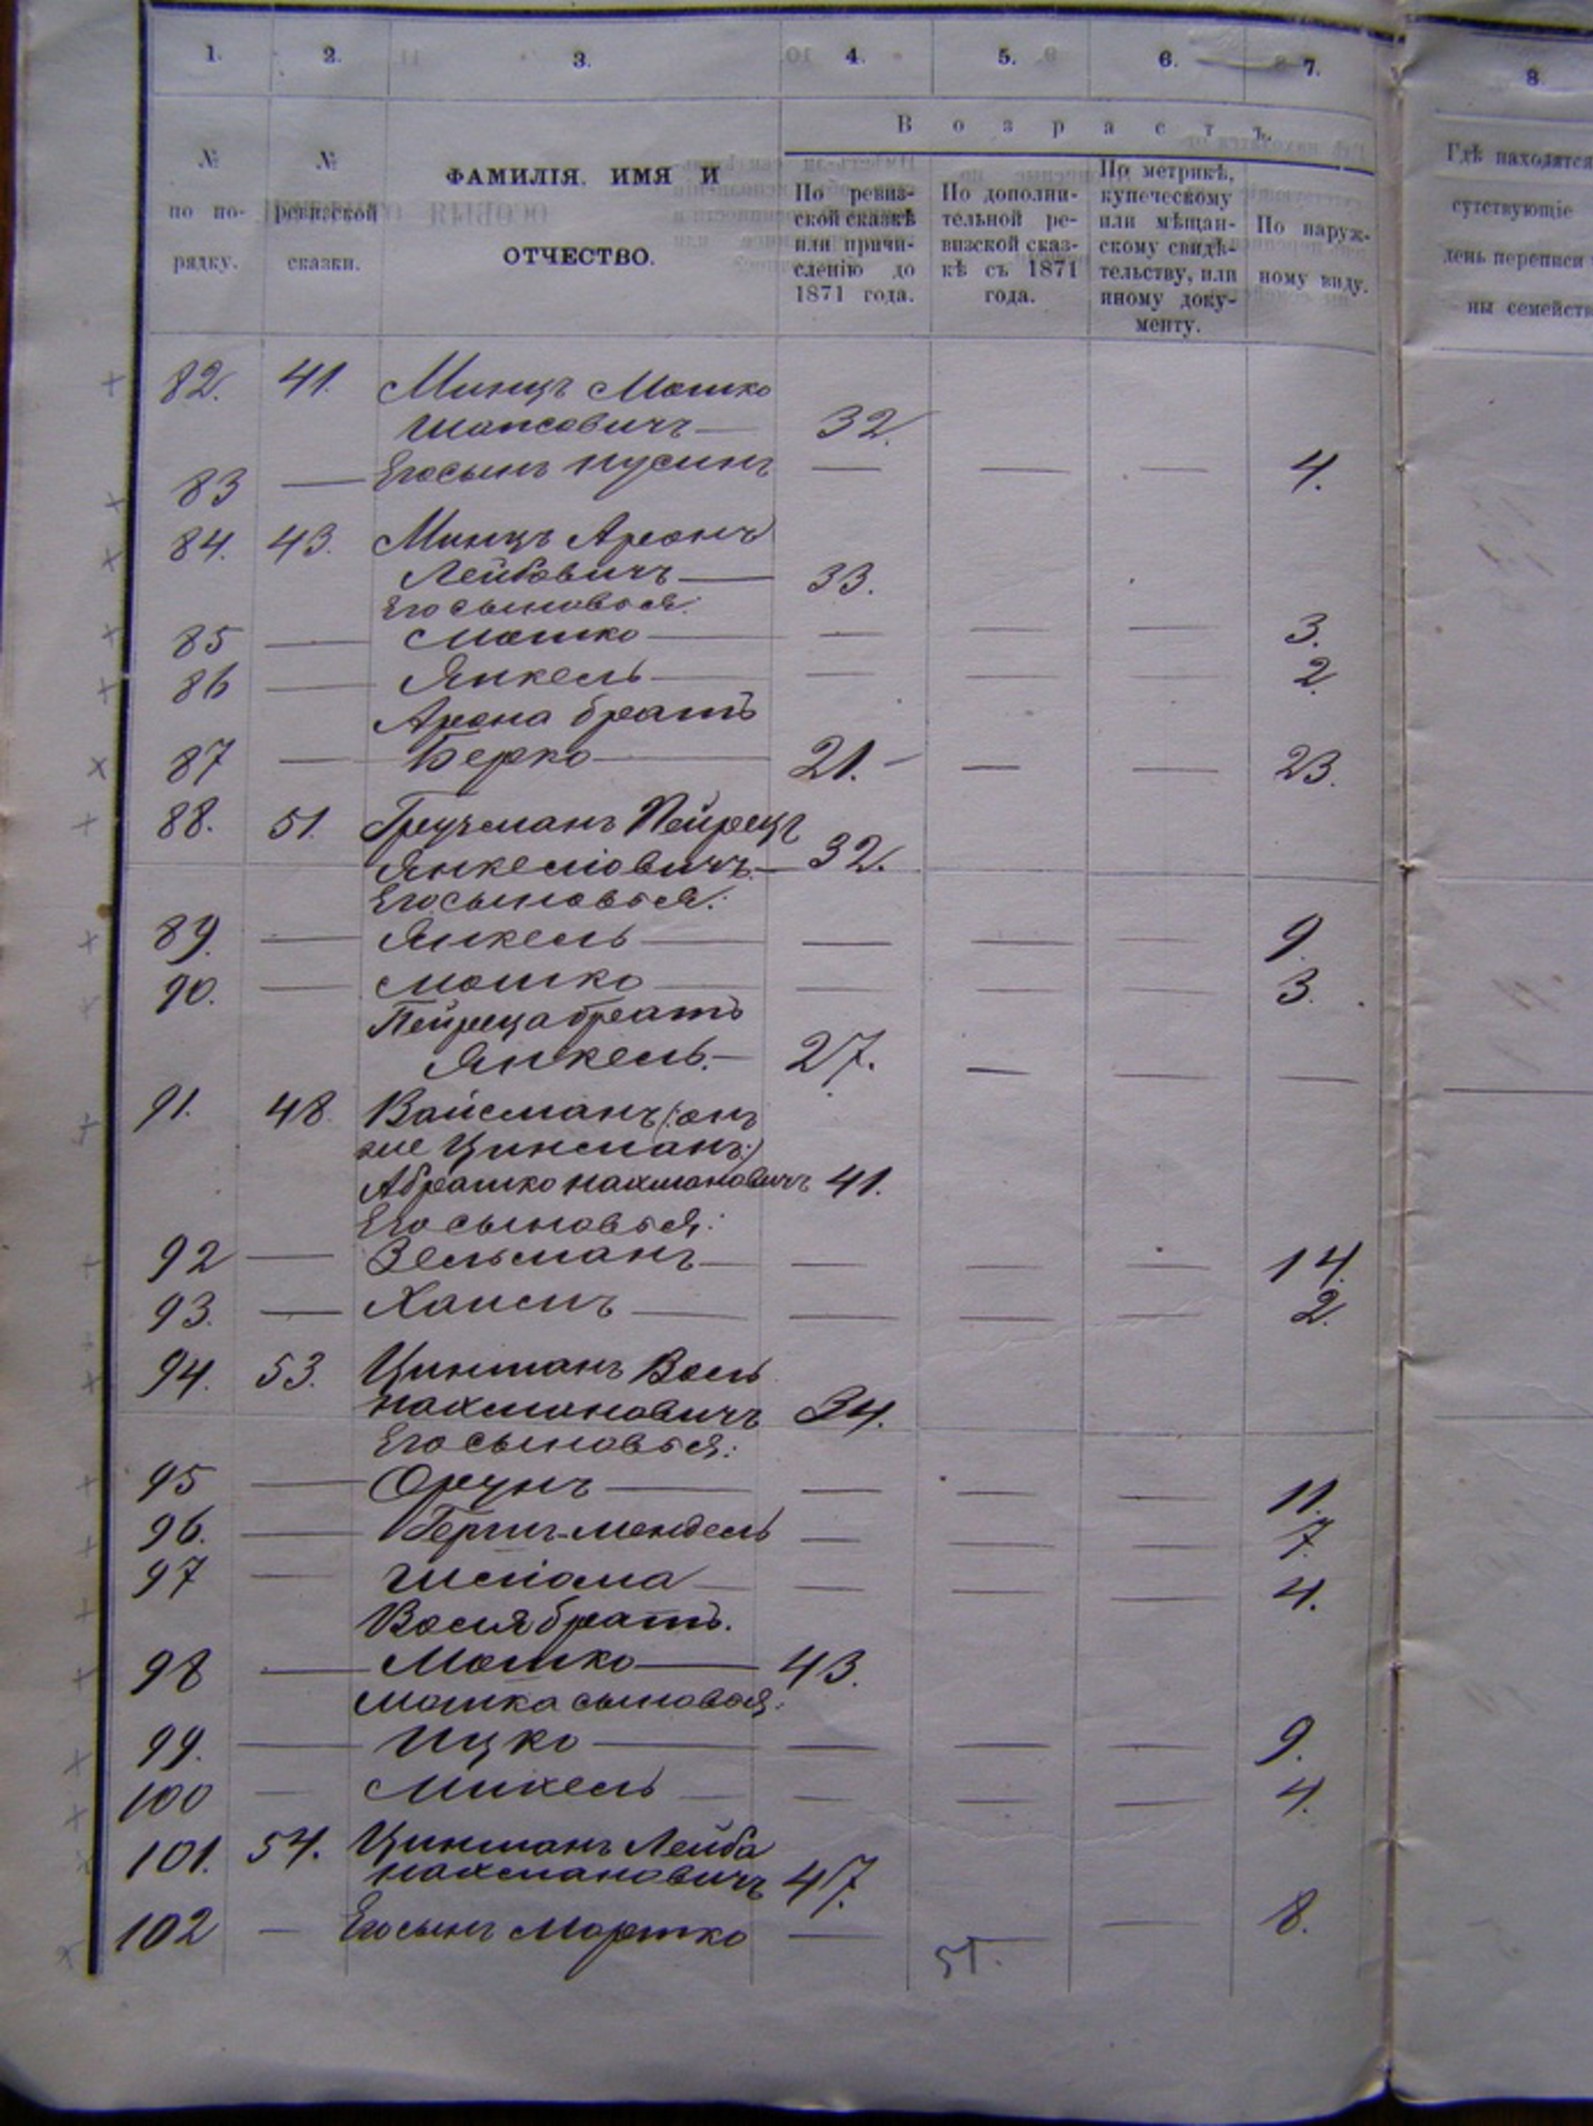 1. 2. 3. 4. 5. 6. 7. 8.
№ по по-рядку.
№ ревизской сказки.
ФАМИЛІЯ, ИМЯ И
ОТЧЕСТВО.
Возрастъ.
По ревиз-
ской сказкѣ
или причи-
сленію до
1871 года.
По дополни-
тельной ре-
визской сказ-
кѣ съ 1871
года.
По метрикѣ,
купеческому
или мѣщан-
скому свидѣ-
тельству, или
иному доку-
менту.
По наруж-
ному виду.
Гдѣ находятся
сутствующіе
день переписи
ны семейств
82. 41. Минцъ Мошко
Шапсовичъ — 32.
83 — Его сынъ Нусинъ — — — 4.
84. 43. Минцъ Аронъ
Лейбовичъ — 33.
Его сыновья:
85 — Мошко — — — — 3.
86 — Янкель — — — — 2.
Арона братъ
87 — Берко — 21. — — — 23.
88. 51. Гручманъ Пейрецъ
Янкеліовичъ — 32.
Его сыновья:
89. — Янкель — — — — 9.
90. — Мошко — — — — 3.
Пейреца братъ
Янкель. — 27. — — —
91. 48. Вайсманъ (: онъ
же Цинманъ:)
Абрашко Нахмановичъ 41.
Его сыновья:
92 — Зельманъ — — — — 14.
93. — Хаимъ — — — — 2.
94. 53. Цинманъ Вось
Нахмановичъ 34.
Его сыновья:
95 — Орунъ — — — — 11.
96. — Гершъ-Мендель — — — 7.
97 — Шліома — — — — 4.
Вося братъ.
98 — Мошко — 43.
Мошка сыновья:
99. — Ицко — — — — 9.
100 — Михель — — — — 4.
101. 54. Цинманъ Лейба
Нахмановичъ 47.
102 — Его сынъ Мортко — — 8.
51.